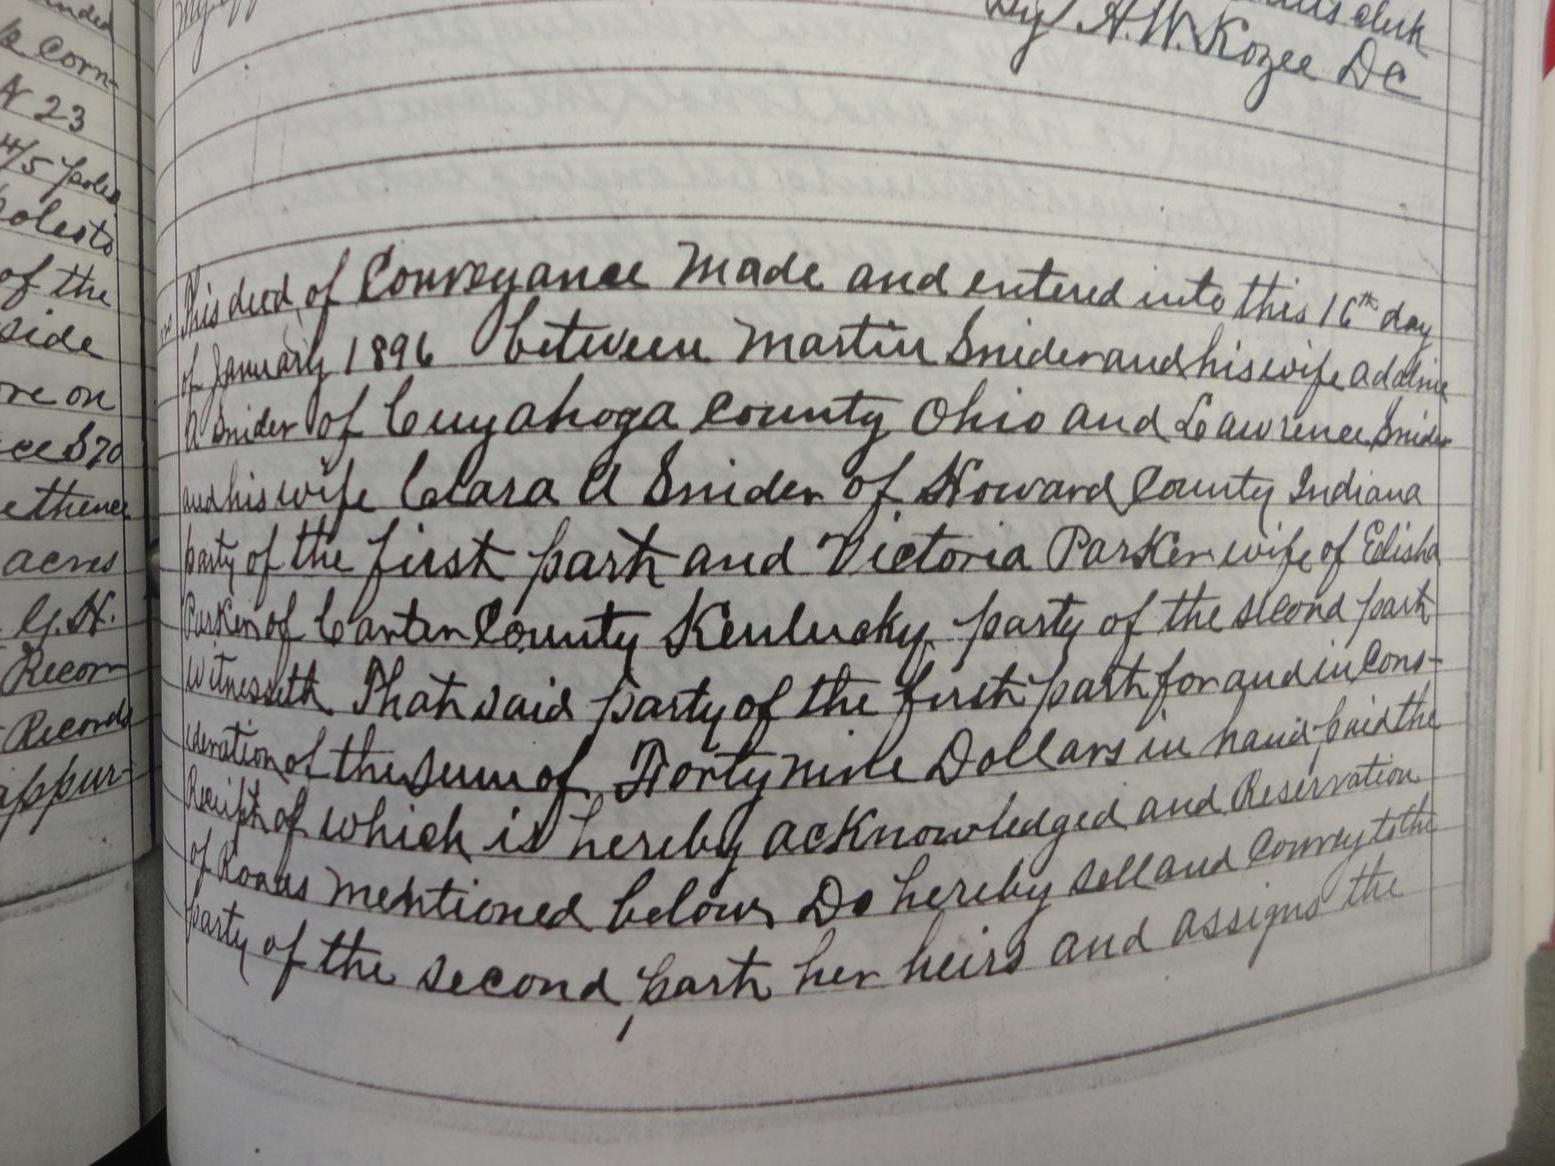 nded
& Corn-
N 23
4/5 poles
poles to
of the
side
re on
ce S 70
e thence
acres
G. H.
Recor
Records
appur-
clerk
By A. W. Kozee DC
This deed of Conveyance Made and entered into this 16th day
of January 1896 between Martin Snider and his wife Adaline
A Snider of Cuyahoga County Ohio and Lawrence Snider
and his wife Clara A Snider of Howard County Indiana
party of the first part and Victoria Parker wife of Elisha
Parker of Carter County Kentucky party of the second part
Witnesseth That said party of the first part for and in Cons-
ideration of the Sum of Forty nine Dollars in hand paid the
Receipt of which is hereby acknowledged and Reservation
of Roads mentioned below Do hereby sell and Convey to the
party of the second part her heirs and assigns the